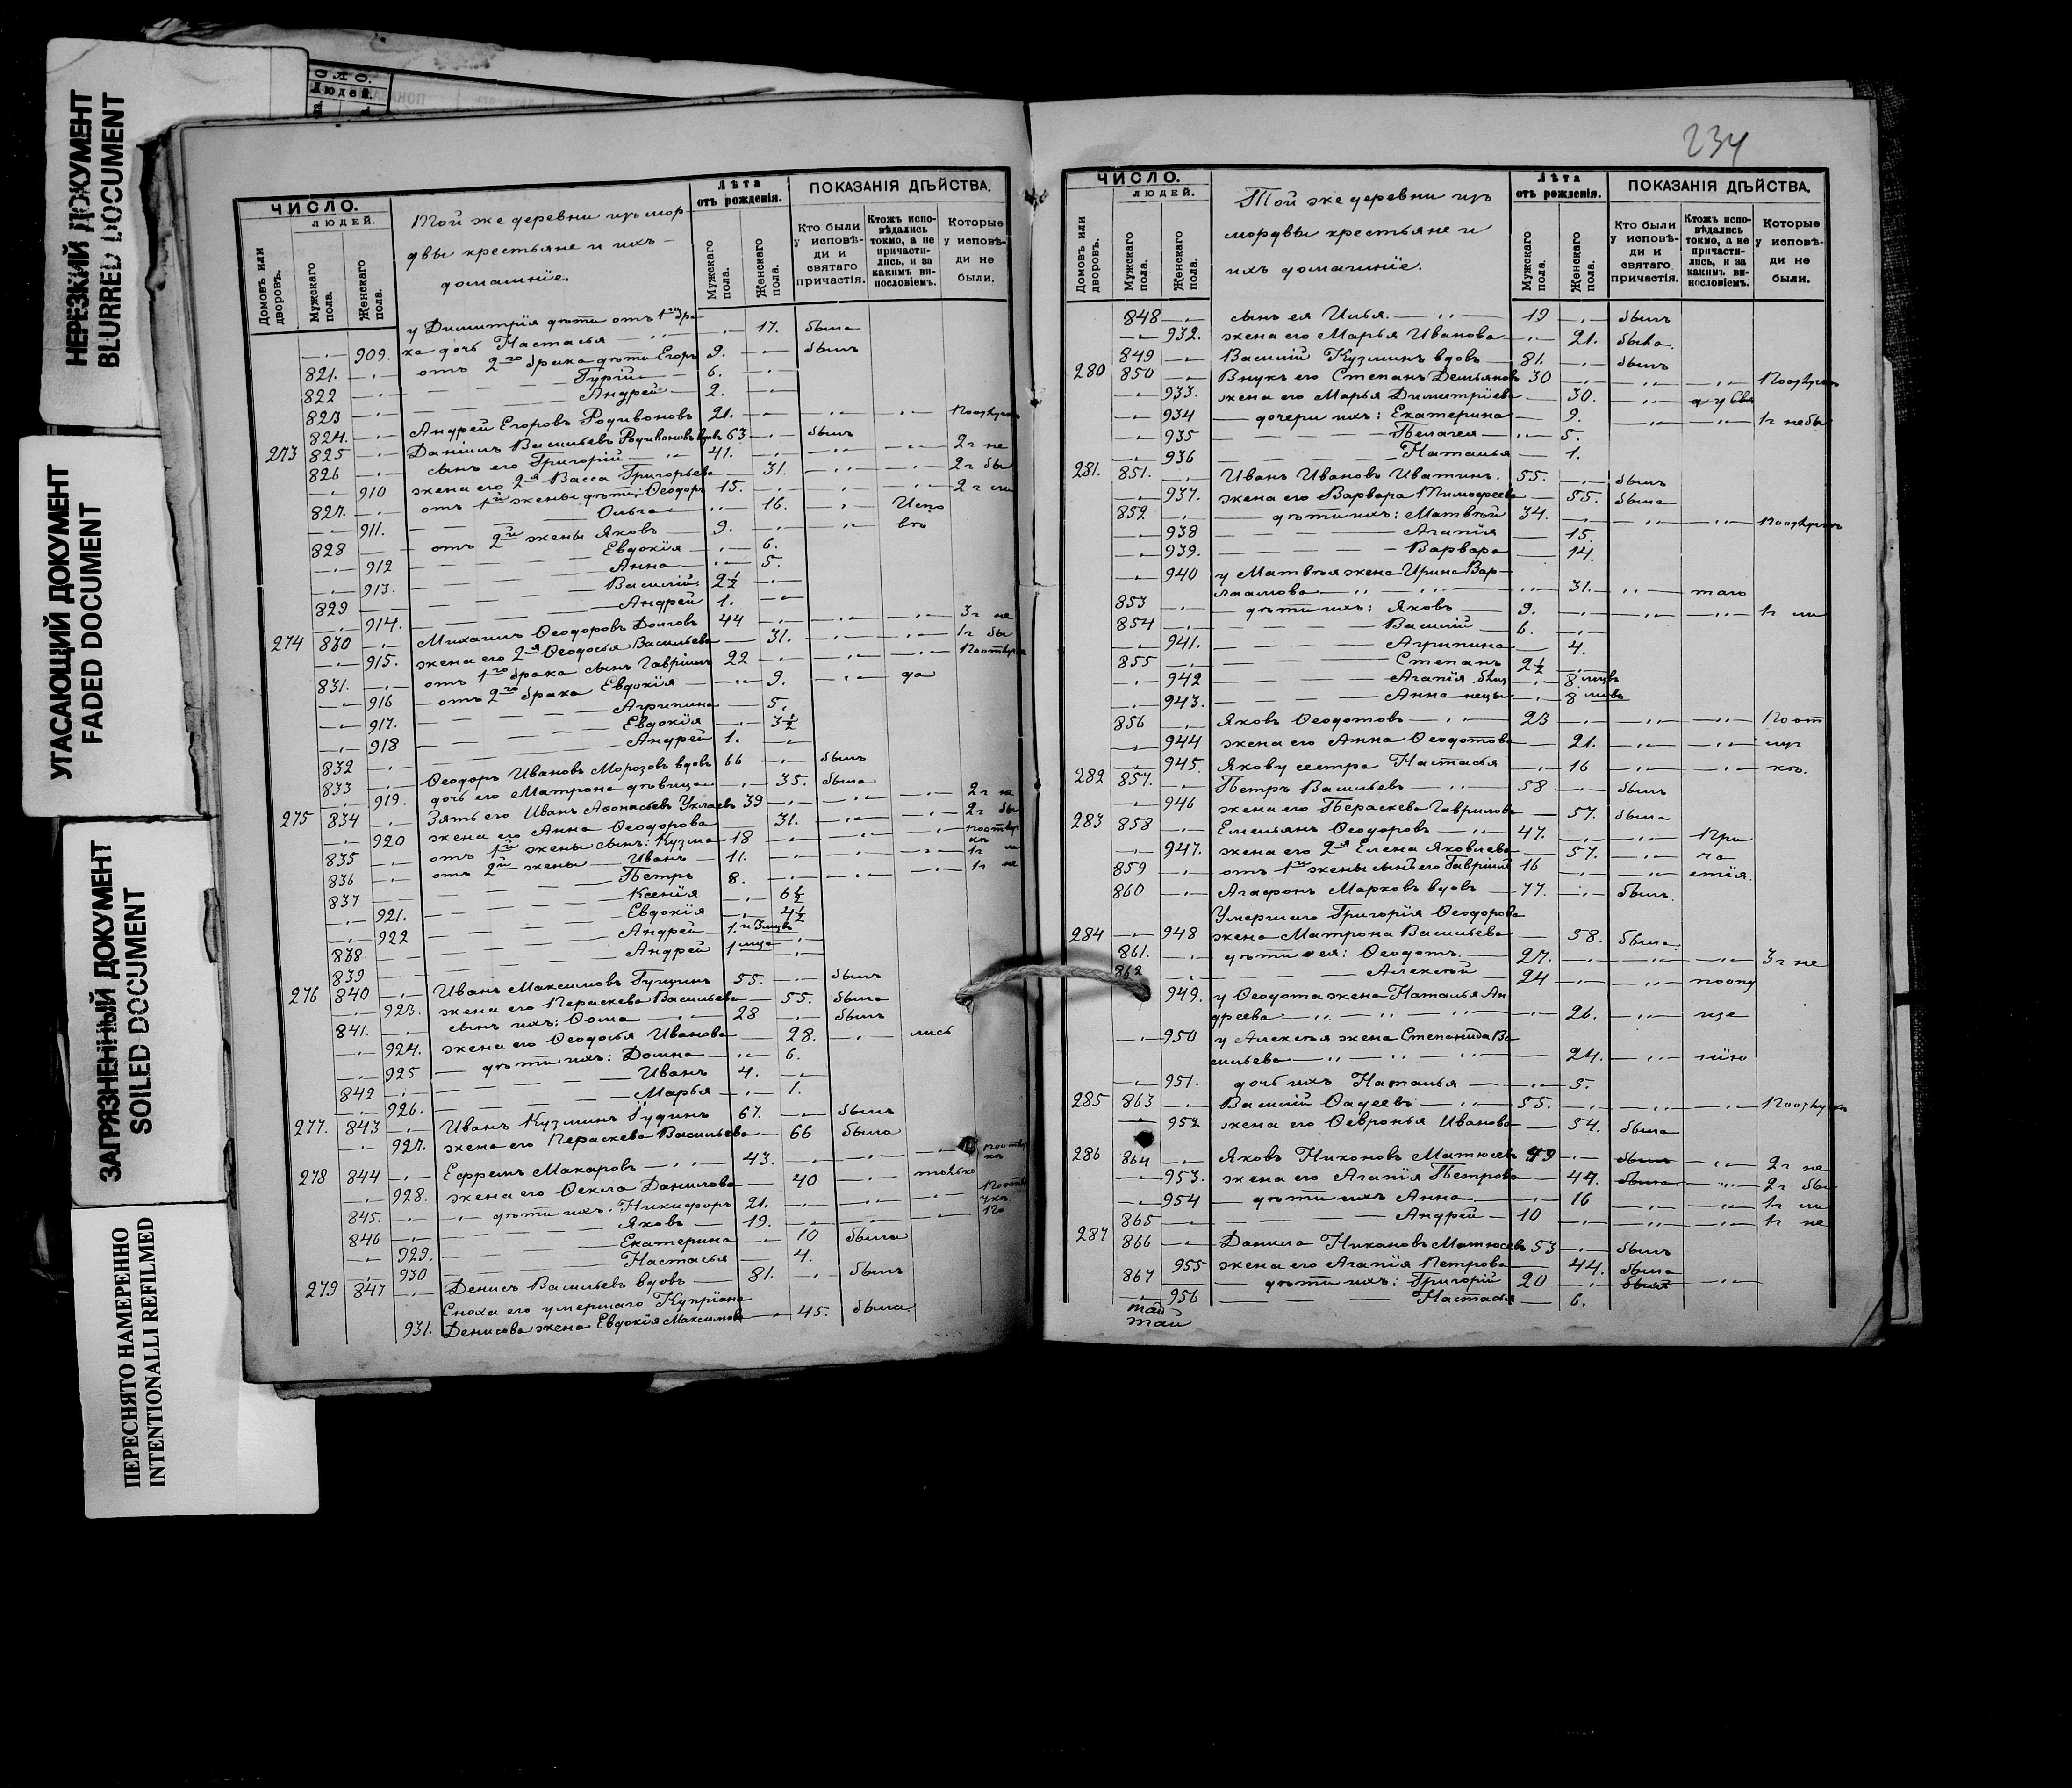 НЕРЕЗКИЙ ДОКУМЕНТ
BLURRED DOCUMENT
УГАСАЮЩИЙ ДОКУМЕНТ
FADED DOCUMENT
ЗАГРЯЗНЕННЫЙ ДОКУМЕНТ
SOILED DOCUMENT
ПЕРЕСНЯТО НАМЕРЕННО
INTENTIONALI REFILMED
ЧИСЛО.
ЛЮДЕЙ.
Домовъ или дворовъ.
Мужскаго пола.
Женскаго пола.
Той же деревни изъ мор
двы крестьяне и ихъ
домашніе.
Лѣта
отъ рожденія.
Мужскаго пола.
Женскаго пола.
ПОКАЗАНІЯ ДѢЙСТВА.
Кто были у исповѣди и святаго причастія.
Ктожъ исповѣдались токмо, а не причастились, и за какимъ винословіемъ.
Которые у исповѣди не были.
у Димитрія дѣти отъ 1го бра-
909. ка дочь Настасья 17. была
821. отъ 2го брака дѣти Егоръ 9. былъ
822 Гурій 6.
823 Андрей 2.
824. Андрей Егоровъ Родивоновъ 21.
273 825 Даніилъ Васильевъ Родивоновъ вдовъ 63 былъ
826 сынъ его Григорій 41. 2 г не
910 жена его 2я Васса Григорьева 31. 2 г бы
827. отъ 1й жены дѣти: Ѳеодоръ 15. 2 г ли
911. Ольга 16. Испо
828 отъ 2й жены Яковъ 9. вѣ
912 Евдокія 6.
913. Анна 5.
829 Василій 2½
914. Андрей 1.
274 830 Михаилъ Ѳеодоровъ Долговъ 44 3 г не
915. жена его 2я Ѳеодосья Васильева 31. 1 г бы
831. отъ 1го брака сынъ Гавріилъ 22
916 отъ 2го брака Евдокія 9. да
917. Агрипина 5.
918 Евдокія 3½
832 Андрей 1.
833 Ѳеодоръ Ивановъ Морозовъ вдовъ 66 былъ
919. дочь его Матрона дѣвица 35. была
275 834 Зять его Иванъ Аѳонасьевъ Уклаевъ 39 2 г не
920 жена его Анна Ѳеодорова 31. 2 г бы
835 отъ 1й жены сынъ: Кузма 18
836 отъ 2й жены Иванъ 11. 1 г ли
837 Петръ 8. 1 г не
921. Ксенія 6½
922 Евдокія 4½
838 Андрей 1. и 3 мцвъ
839 Андрей 1 мца
276 840 Иванъ Максимовъ Гущинъ 55. былъ
923. жена его Пераскева Васильева 55. была
841. сынъ ихъ: Ѳома 28 былъ
924. жена его Ѳеодосья Иванова 28. лись
925 дѣти ихъ: Домна 6.
842 Иванъ 4.
926. Марья 1.
277. 843 Иванъ Кузминъ Гудинъ 67. былъ
927. жена его Пераскева Васильева 66 была
278 844 Ефремъ Макаровъ 43.
928. жена его Ѳекла Данилова 40 только
845. дѣти ихъ: Никифоръ 21.
846 Яковъ 19.
929. Екатерина 10 была
930 Настасья 4.
279 847 Денисъ Васильевъ вдовъ 81. былъ
Сноха его умершаго Купріана
931. Денисова жена Евдокія Максимова 45. была
234
ЧИСЛО.
ЛЮДЕЙ.
Домовъ или дворовъ.
Мужскаго пола.
Женскаго пола.
Той же деревни изъ
мордвы крестьяне и
ихъ домашніе.
Лѣта
отъ рожденія.
Мужскаго пола.
Женскаго пола.
ПОКАЗАНІЯ ДѢЙСТВА.
Кто были у исповѣди и святаго причастія.
Ктожъ исповѣдались токмо, а не причастились, и за какимъ винословіемъ.
Которые у исповѣди не были.
848 сынъ ея Илья. 19 былъ
932. жена его Марья Иванова 21. была.
849 Василій Кузминъ вдовъ 81. былъ
280 850 Внукъ его Степанъ Демьяновъ 30
933. жена его Марья Димитріева 30.
934 дочери ихъ: Екатерина 9. 1 г небы
935 Пелагея 5.
936 Наталья 1.
281. 851. Иванъ Ивановъ Иватинъ. 55. былъ
937. жена его Варвара Тимоѳеева 55. была
852 дѣти ихъ: Матвѣй 34.
938 Агапія 15.
939. Варвара 14.
940 у Матвѣя жена Ирина Вар-
лаамова 31. таго
853 дѣти ихъ: Яковъ 9. 1 г ли
854 Василій 6.
941. Агрипина 4.
855 Степанъ 2½
942 Агапія 8 мцвъ
943. Анна 8 мцвъ
856 Яковъ Ѳеодотовъ 23
944 жена его Анна Ѳеодотова 21.
945. Якову сестра Настасья 16
282 857. Петръ Васильевъ 58 былъ
946 жена его Пераскева Гаврилова 57. была
283 858 Емельянъ Ѳеодоровъ 47. При
947. жена его 2я Елена Яковлева 57. ча
859 отъ 1й жены сынъ его Гавріилъ 16 стія.
860 Агафонъ Марковъ вдовъ 77. былъ.
Умершаго Григорія Ѳеодорова
284 948 жена Матрона Васильева 58. была
861. дѣти ея: Ѳеодотъ. 27. 3 г не
862 Алексѣй 24
949. у Ѳеодота жена Наталья Ан
дреева 26.
950 у Алексѣя жена Степанида Ва
сильева 24.
951. дочь ихъ Наталья 5.
285 863 Василій Ѳадеевъ 55.
952 жена его Ѳевронья Иванова 54. была
286 864 Яковъ Никоновъ Матюсевъ 49 былъ 2 г не
953. жена его Агапія Петрова 44. была 2 г бы
954 дѣти ихъ Анна 16 1 г ли
865 Андрей 10 1 г не
287 866 Данила Никановъ Матюсевъ 53 былъ
955 жена его Агапія Петрова 44. была
867 дѣти ихъ: Григорій 20 былъ
956 Настасья 6.
май
май